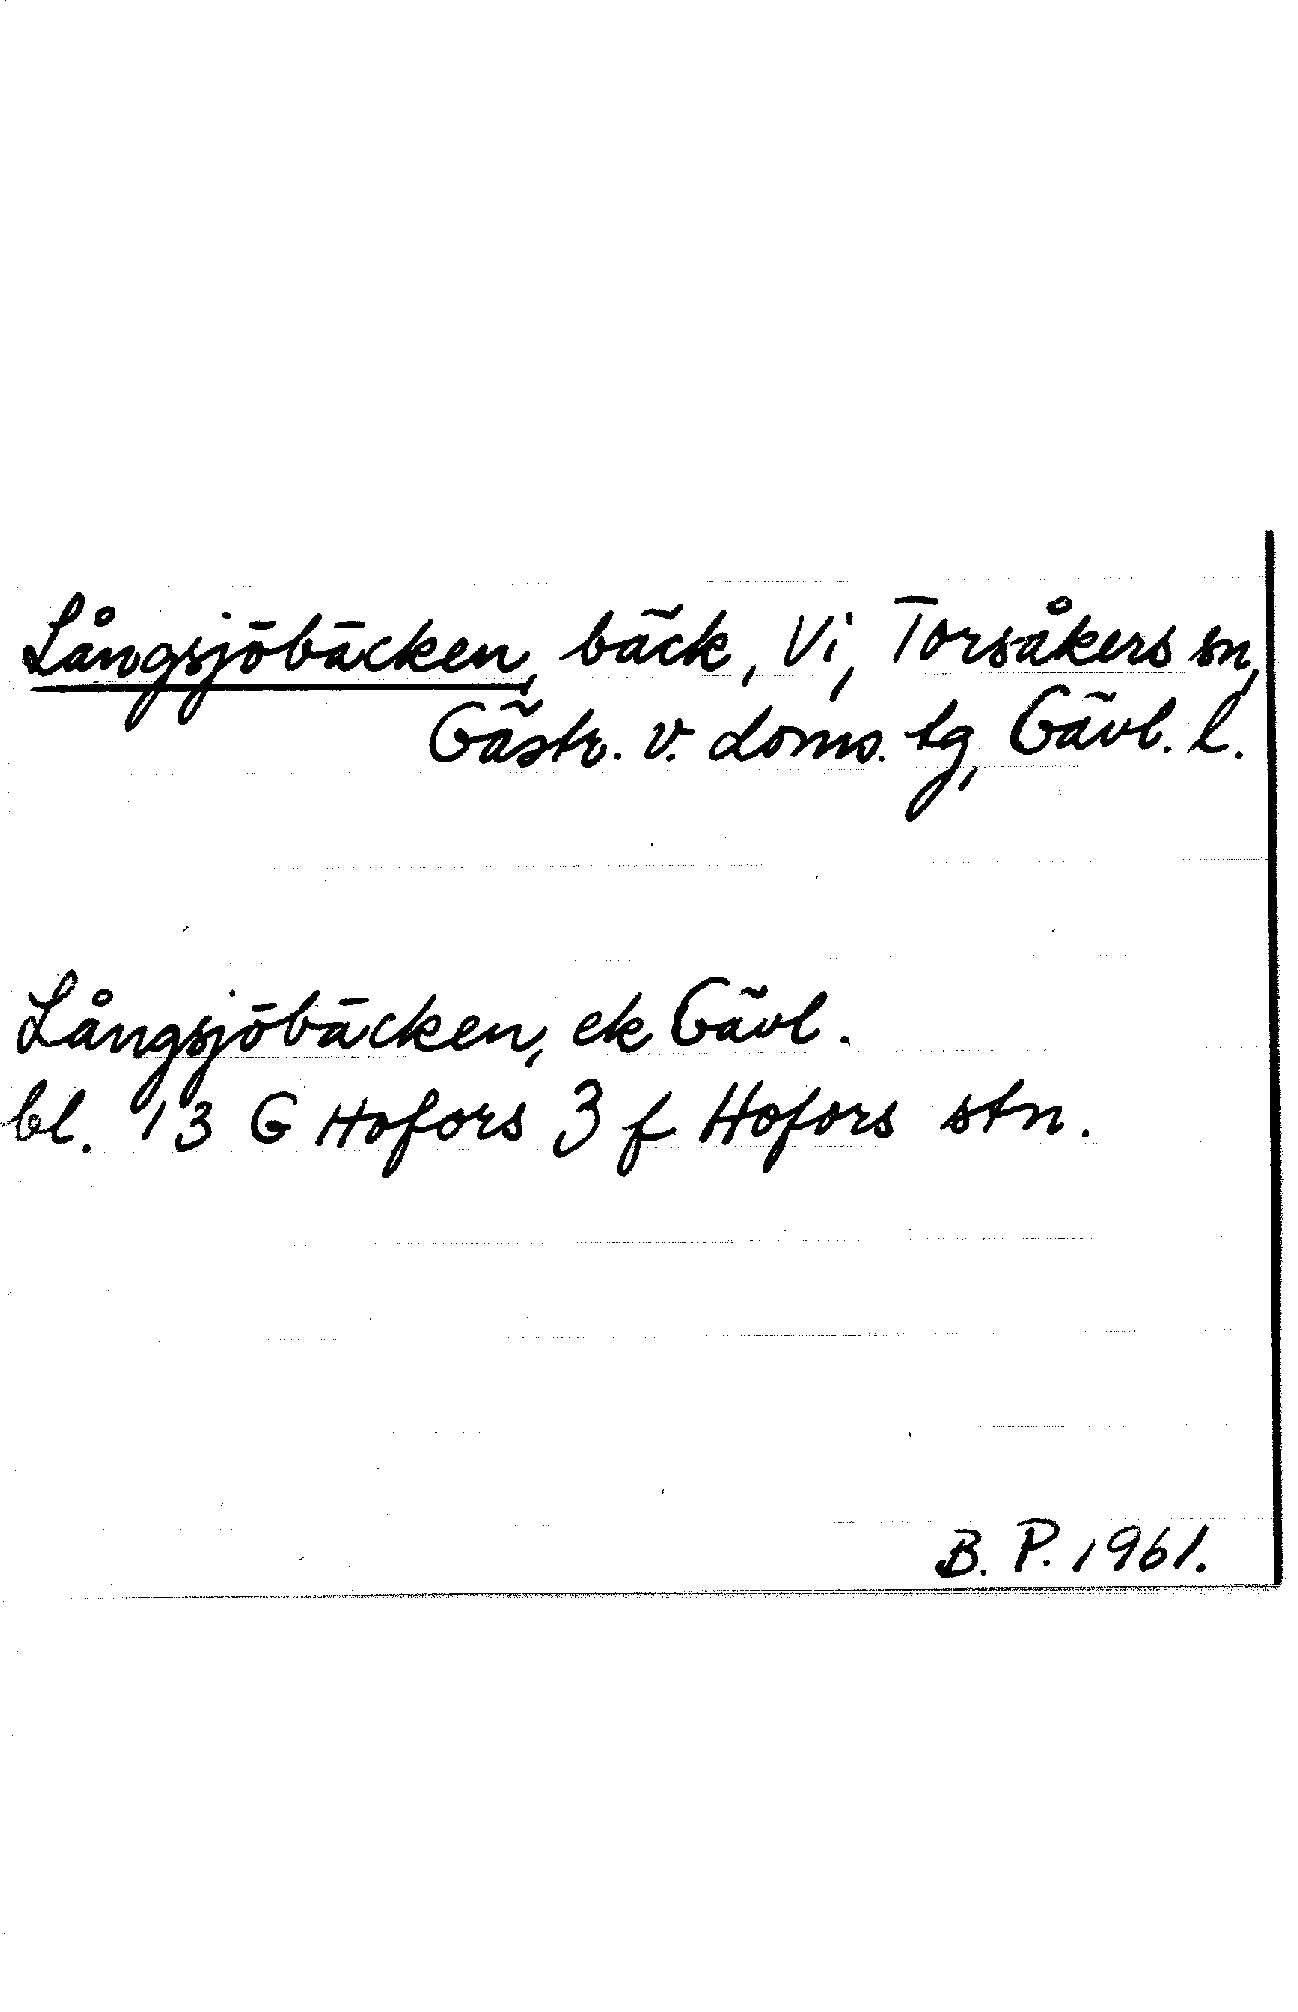 Långsjöbäcken, bäck, Vi, Torsåkers sn,
Gästr. v. doms. tg, Gävl. l.
Långsjöbäcken, ek Gävl.
bl. 13 G Hofors 3 f Hofors stn.
B. P. 1961.